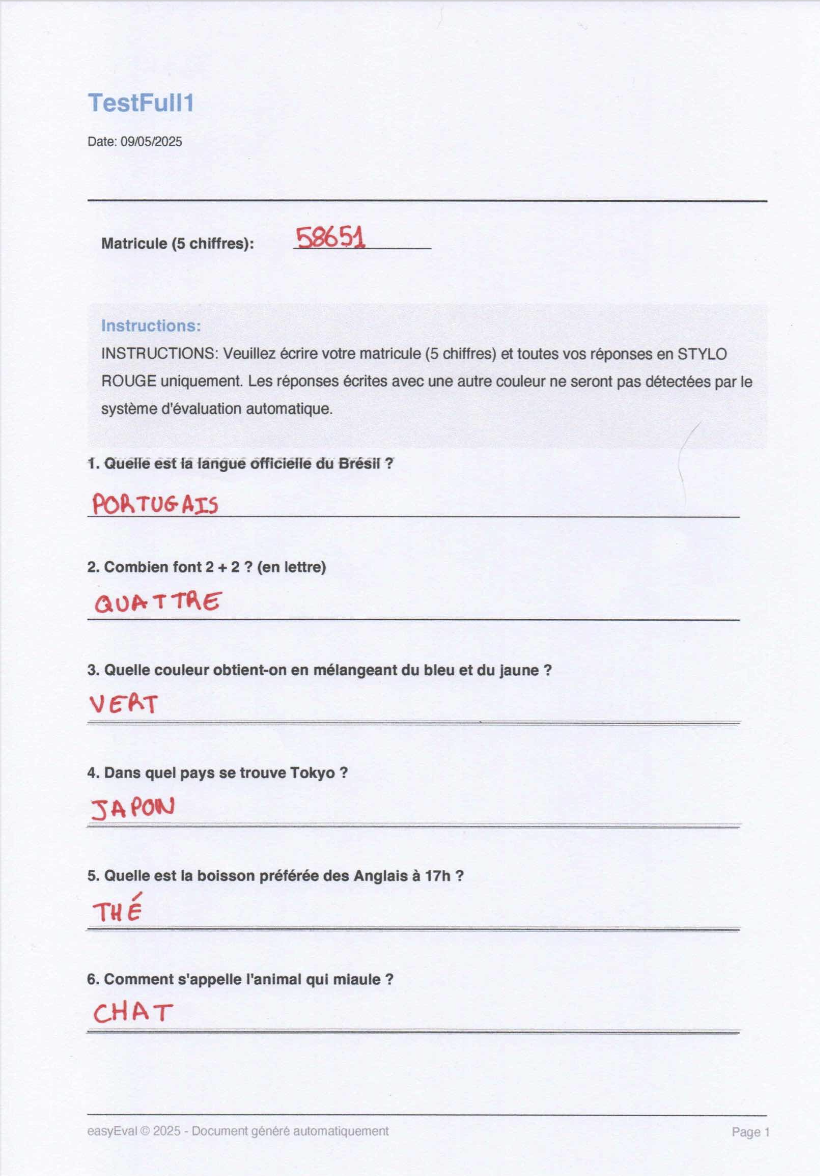 TestFull1
Date: 09/05/2025
Matricule (5 chiffres): 58651
Instructions:
INSTRUCTIONS: Veuillez écrire votre matricule (5 chiffres) et toutes vos réponses en STYLO
ROUGE uniquement. Les réponses écrites avec une autre couleur ne seront pas détectées par le
système d'évaluation automatique.
1. Quelle est la langue officielle du Brésil ?
PORTUGAIS
2. Combien font 2 + 2 ? (en lettre)
QUATTRE
3. Quelle couleur obtient-on en mélangeant du bleu et du jaune ?
VERT
4. Dans quel pays se trouve Tokyo ?
JAPON
5. Quelle est la boisson préférée des Anglais à 17h ?
THÉ
6. Comment s'appelle l'animal qui miaule ?
CHAT
easyEval © 2025 - Document généré automatiquement Page 1